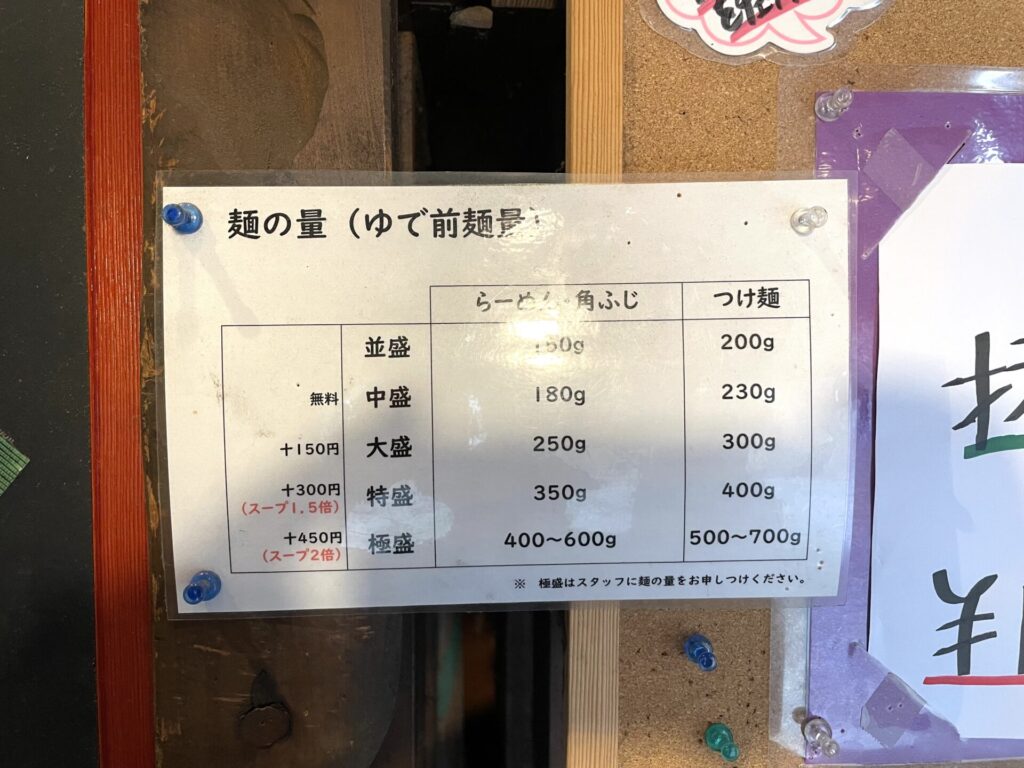 麺の量（ゆで前麺量）
らーめん・角ふじ つけ麺
並盛 150g 200g
無料 中盛 180g 230g
+150円 大盛 250g 300g
+300円 (スープ1.5倍) 特盛 350g 400g
+450円 (スープ2倍) 極盛 400～600g 500～700g
※ 極盛はスタッフに麺の量をお申しつけください。